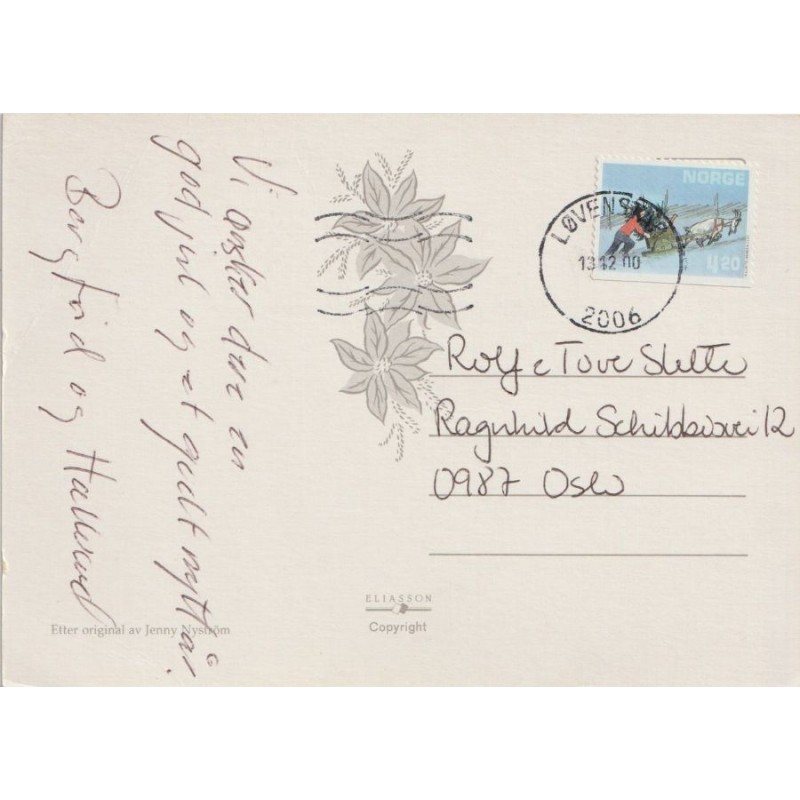 Vi ønsker dere en
god jul og et godt nytt år.
Bergfrid og Hallvard
NORGE
4,20
LØVENSTAD
13.12.00
2006
Rolf e Tove Slette
Ragnhild Schibbiesvei 12
0987 Oslo
ELIASSON
Copyright
Etter original av Jenny Nyström